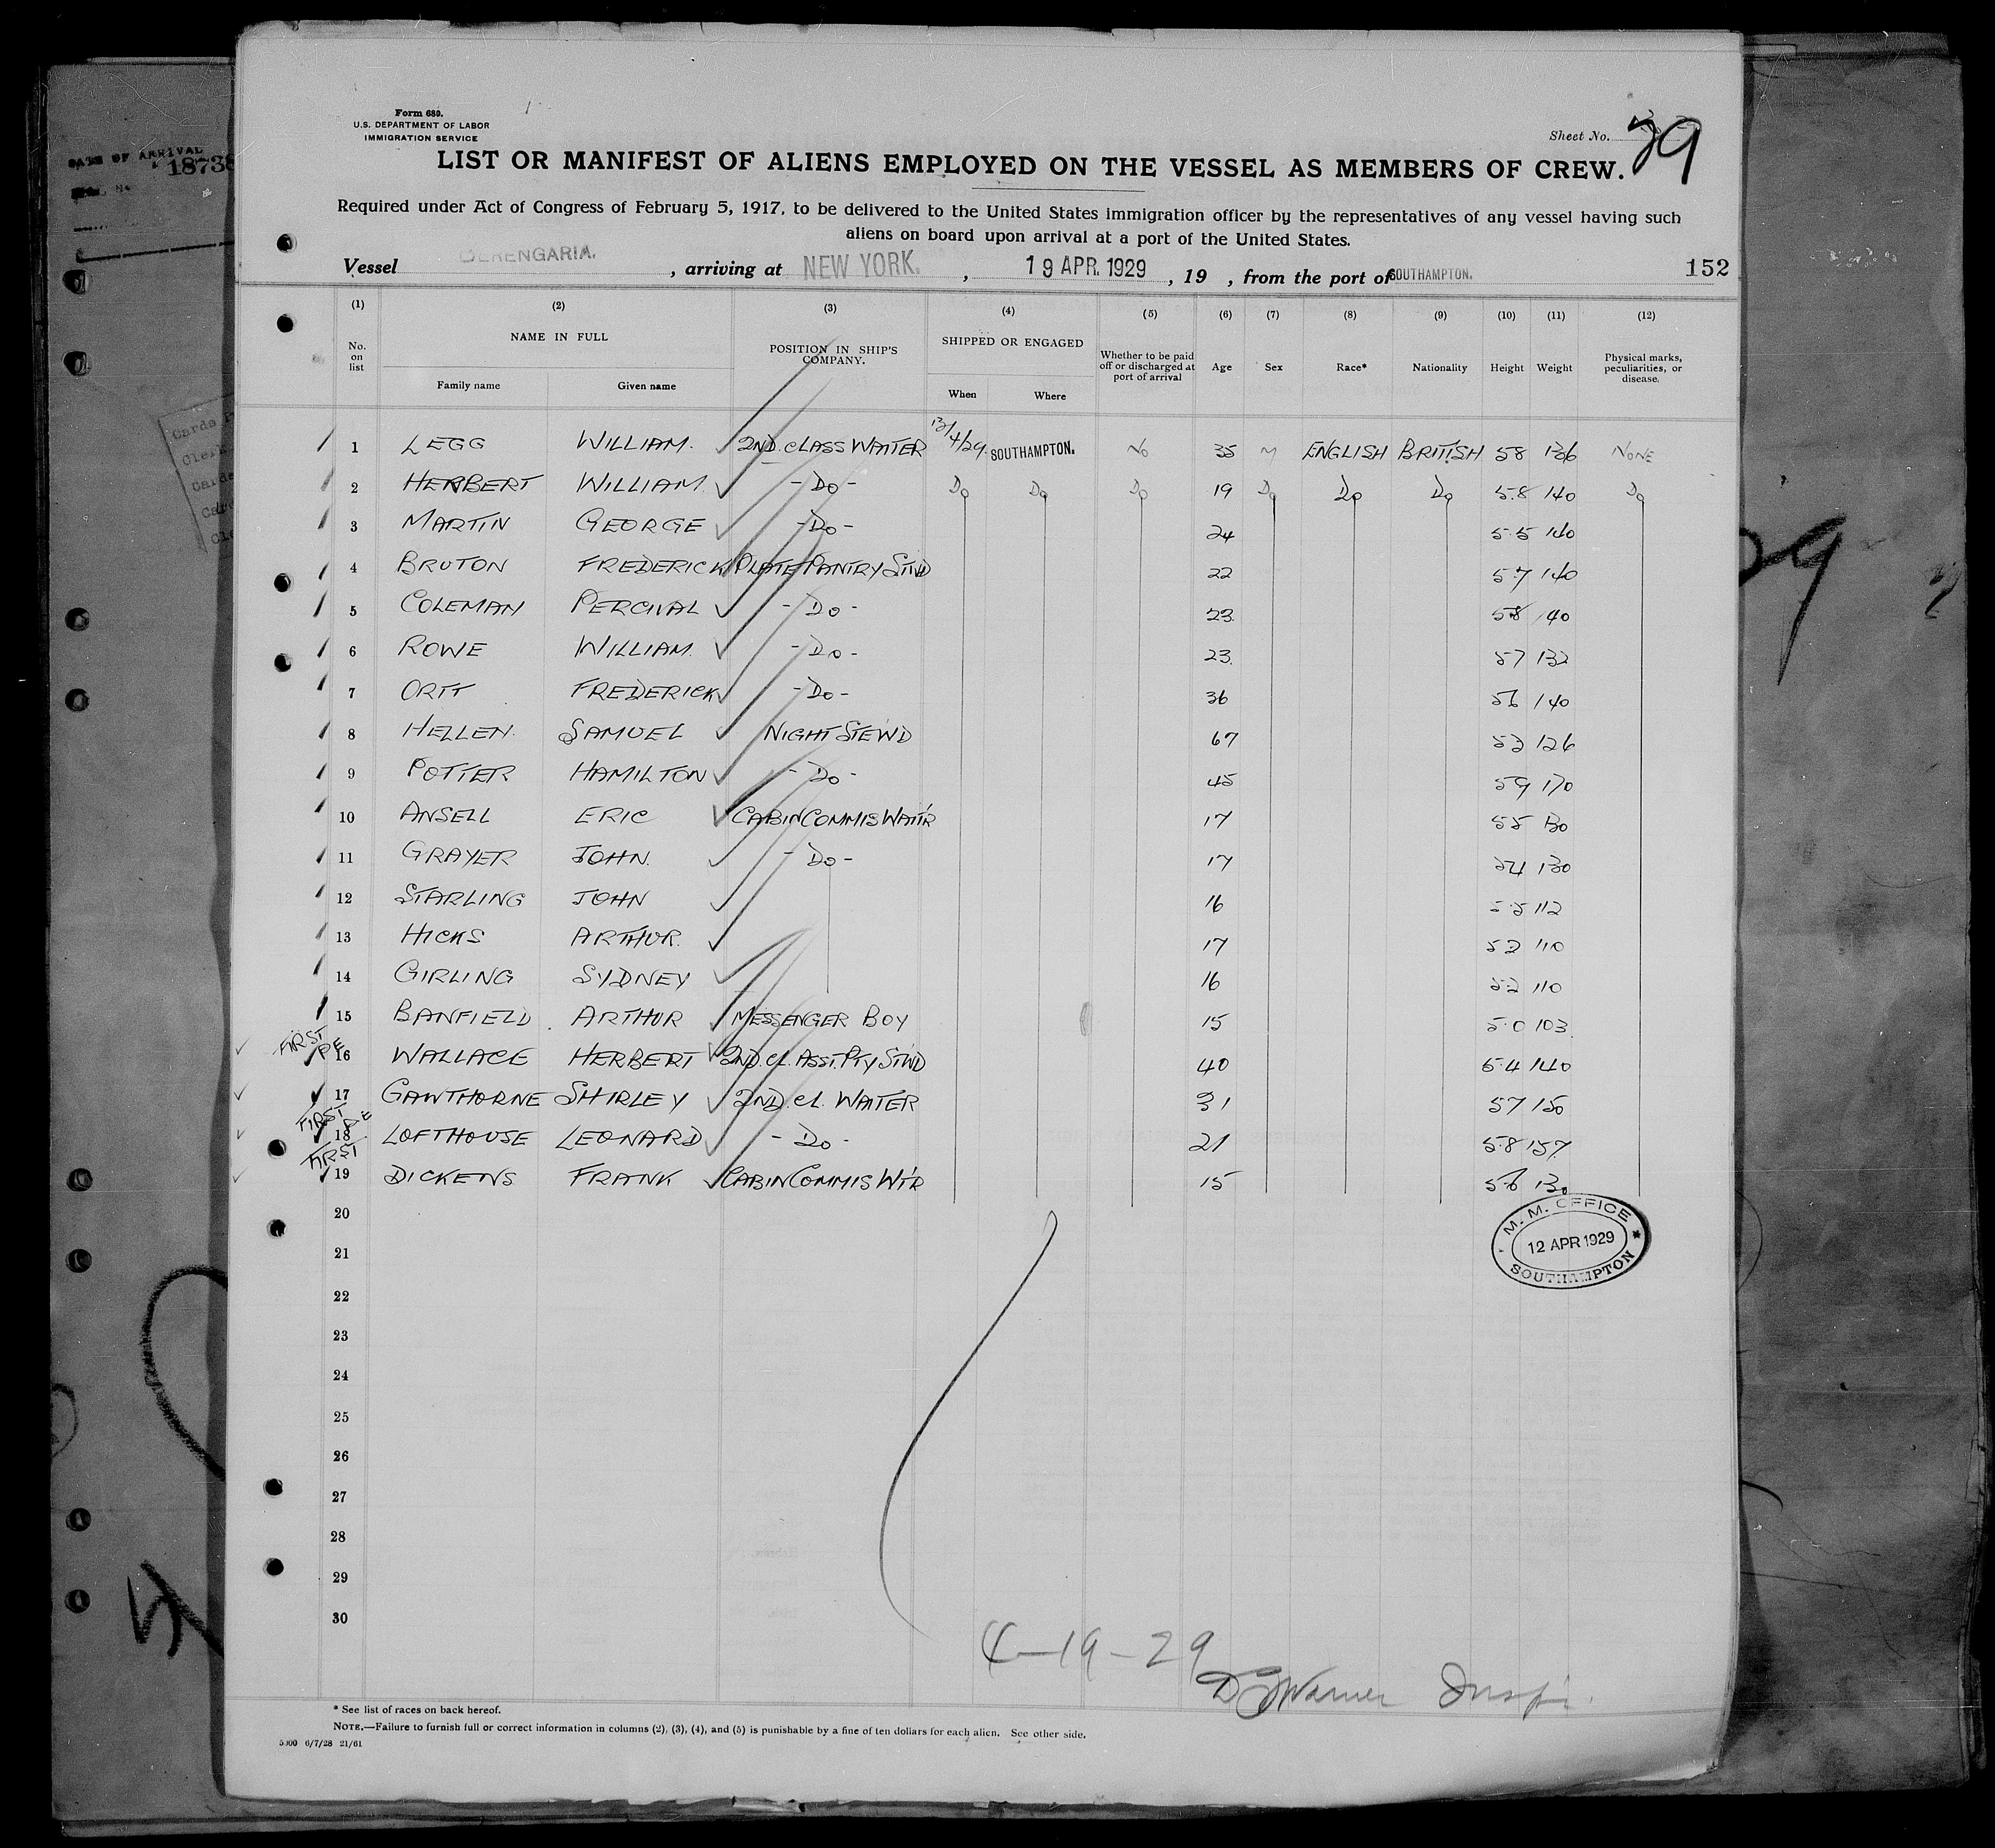 Form 680.
U.S. DEPARTMENT OF LABOR
IMMIGRATION SERVICE
Sheet No. 39
DATE OF ARRIVAL
18738
LIST OR MANIFEST OF ALIENS EMPLOYED ON THE VESSEL AS MEMBERS OF CREW.
Required under Act of Congress of February 5, 1917, to be delivered to the United States immigration officer by the representatives of any vessel having such
aliens on board upon arrival at a port of the United States.
Vessel BERENGARIA. , arriving at NEW YORK. , 19 APR. 1929 , 19 , from the port of SOUTHAMPTON. 152
(1) (2) (3) (4) (5) (6) (7) (8) (9) (10) (11) (12)
No. on list NAME IN FULL POSITION IN SHIP'S COMPANY. SHIPPED OR ENGAGED Whether to be paid off or discharged at port of arrival Age Sex Race* Nationality Height Weight Physical marks, peculiarities, or disease.
Family name Given name When Where
1 LEGG WILLIAM. 2ND. CLASS WAITER 13/4/29. SOUTHAMPTON. NO 35 M ENGLISH BRITISH 58 136 NONE
2 HERBERT WILLIAM. -DO- DO DO DO 19 DO DO DO 5.8 140 DO
3 MARTIN GEORGE -DO- 24 5.5 140
4 BRUTON FREDERICK PLATE PANTRY STWD 22 5.7 140
5 COLEMAN PERCIVAL -DO- 23. 58 140
6 ROWE WILLIAM. -DO- 23. 57 132
7 ORTT FREDERICK -DO- 36 56 140
8 HELLEN. SAMUEL NIGHT STEWD 67 52 126
9 POTTER HAMILTON -DO- 45 59 170
10 ANSELL ERIC CABIN COMMIS WAIT'R 17 55 130
11 GRAYER JOHN. -DO- 17 54 130
12 STARLING JOHN 16 5.5 112
13 HICKS ARTHUR. 17 52 110
14 GIRLING SYDNEY 16 52 110
15 BANFIELD. ARTHUR MESSENGER BOY 15 5.0 103
FIRST
16 WALLACE HERBERT 2ND. CL. ASST. PTY STWD 40 5.4 140
17 GAWTHORNE SHIRLEY 2ND. CL. WAITER 31 57 150
FIRST
18 LOFTHOUSE LEONARD -DO- 21 5.8 157
FIRST
19 DICKENS FRANK CABIN COMMIS WT'R 15 56 130
20
M. M. OFFICE
12 APR 1929
SOUTHAMPTON
21
22
23
24
25
26
27
28
29
30
4-19-29
Warner Insp.
* See list of races on back hereof.
NOTE.—Failure to furnish full or correct information in columns (2), (3), (4), and (5) is punishable by a fine of ten dollars for each alien. See other side.
5000 6/7/28 21/61